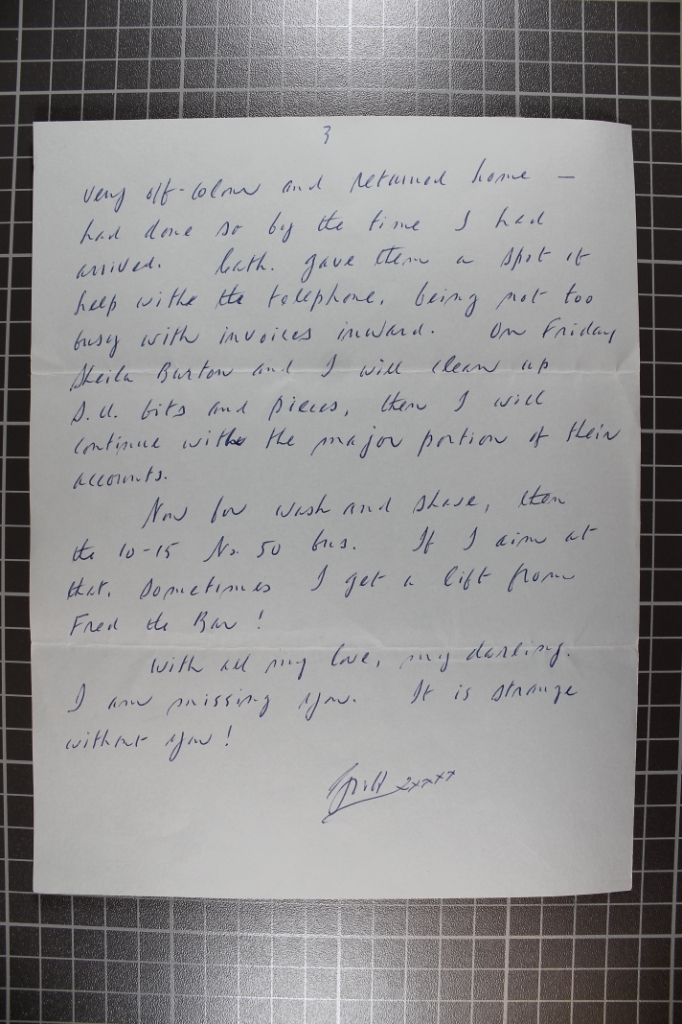 3
very off-colour and returned home -
had done so by the time I had
arrived. Cath. gave them a spot of
help withe the telephone, being not too
busy with invoices inward. On Friday
Sheila Burton and I will clean up
S.U. bits and pieces, then I will
continue withe the major portion of their
accounts.
Now for wash and shave, then
the 10-15 No. 50 bus. If I aim at
that, sometimes I get a lift from
Fred the Bar!
With all my love, my darling.
I am missing you. It is strange
without you!
xxxxx